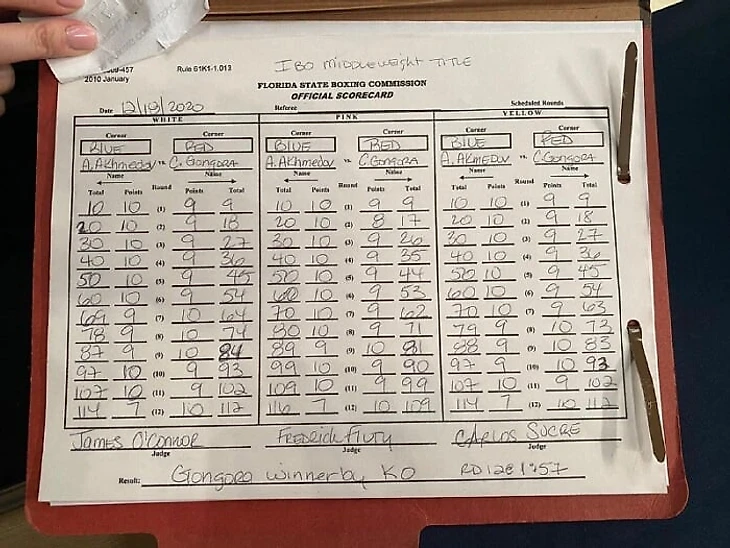 309-457 Rule 61K1-1.013 IBO MIDDLEWEIGHT TITLE
2010 January
FLORIDA STATE BOXING COMMISSION
OFFICIAL SCORECARD
Date 12/19/2020 Referee Scheduled Rounds
WHITE PINK YELLOW
Corner Corner Corner Corner Corner Corner
BLUE RED BLUE RED BLUE RED
A. Akhmedov vs. C. Gongora A. Akhmedov vs. C. Gongora A. Akmedov vs. C. Gongora
Name Name Name Name Name Name
Total Points Round Points Total Total Points Round Points Total Total Points Round Points Total
10 10 (1) 9 9 10 10 (1) 9 9 10 10 (1) 9 9
20 10 (2) 9 18 20 10 (2) 8 17 20 10 (2) 9 18
30 10 (3) 9 27 30 10 (3) 9 26 30 10 (3) 9 27
40 10 (4) 9 36 40 10 (4) 9 35 40 10 (4) 9 36
50 10 (5) 9 45 50 10 (5) 9 44 50 10 (5) 9 45
60 10 (6) 9 54 60 10 (6) 9 53 60 10 (6) 9 54
69 9 (7) 10 64 70 10 (7) 9 62 70 10 (7) 9 63
78 9 (8) 10 74 80 10 (8) 9 71 79 9 (8) 10 73
87 9 (9) 10 84 89 9 (9) 10 81 88 9 (9) 10 83
97 10 (10) 9 93 99 10 (10) 9 90 97 9 (10) 10 93
107 10 (11) 9 102 109 10 (11) 9 99 107 10 (11) 9 102
114 7 (12) 10 112 116 7 (12) 10 109 114 7 (12) 10 112
JAMES O'CONNOR FREDRICK FLUTY CARLOS SUCRE
Judge Judge Judge
Result: Gongora winner by KO RD 12 @ 1:57